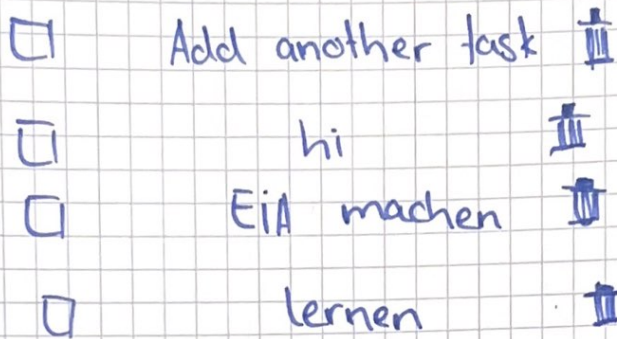 Add another task
hi
EiA machen
lernen